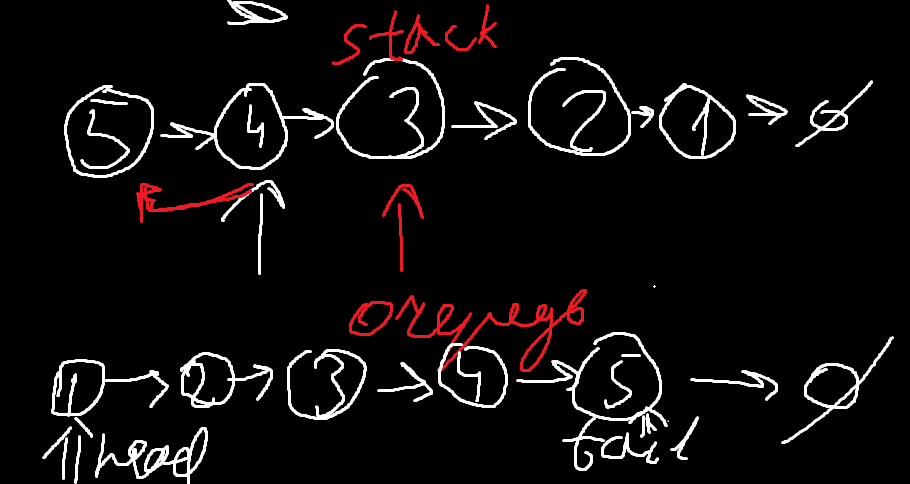 stack
5 → 4 → 3 → 2 → 1 → ∅
очередь
1 → 2 → 3 → 4 → 5 → ∅
head tail